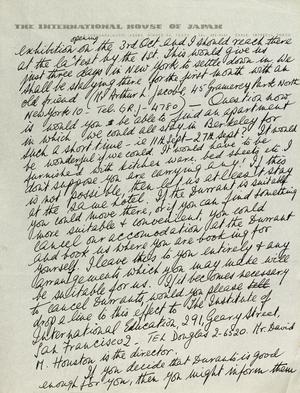 THE INTERNATIONAL HOUSE OF JAPAN
opening
exhibition on the 3rd Oct. and I should reach there
at the latest by the 1st. This would give us
just three days in New York to settle down in. We
shall be staying there for the first month with an
old friend (Mr. Arthur Jacobs, 45 Gramercy Park North
New York 10 - Tel. GR.7 - 4780) — Question now
is would you be able to find an apartment
in which we could all stay in Berkeley for
such a short time - ie 11th Sept - 27th Sept? It would
be wonderful if we could. It would have to be
furnished with kitchen ware, bed sheets etc. I
don't suppose you are carrying any! If this
is not possible, then let us at least stay
at the same hotel. If the Durrant is suitable
you could move there, or if you can find something
more suitable & convenient, you could
cancel our accommodation at the Durrant
and book us where you are booking for
yourself. I leave this to you entirely & any
arrangements which you may make will
be suitable for us. If it becomes necessary
to cancel Durrants, would you please
drop a line to this effect to The Institute of
International Education, 291 Geary Street,
San Francisco 2 - Tel: Douglas 2-6520. Mr. David
M. Houston is the director.
If you decide that Durrants is good
enough for you, then you might inform them